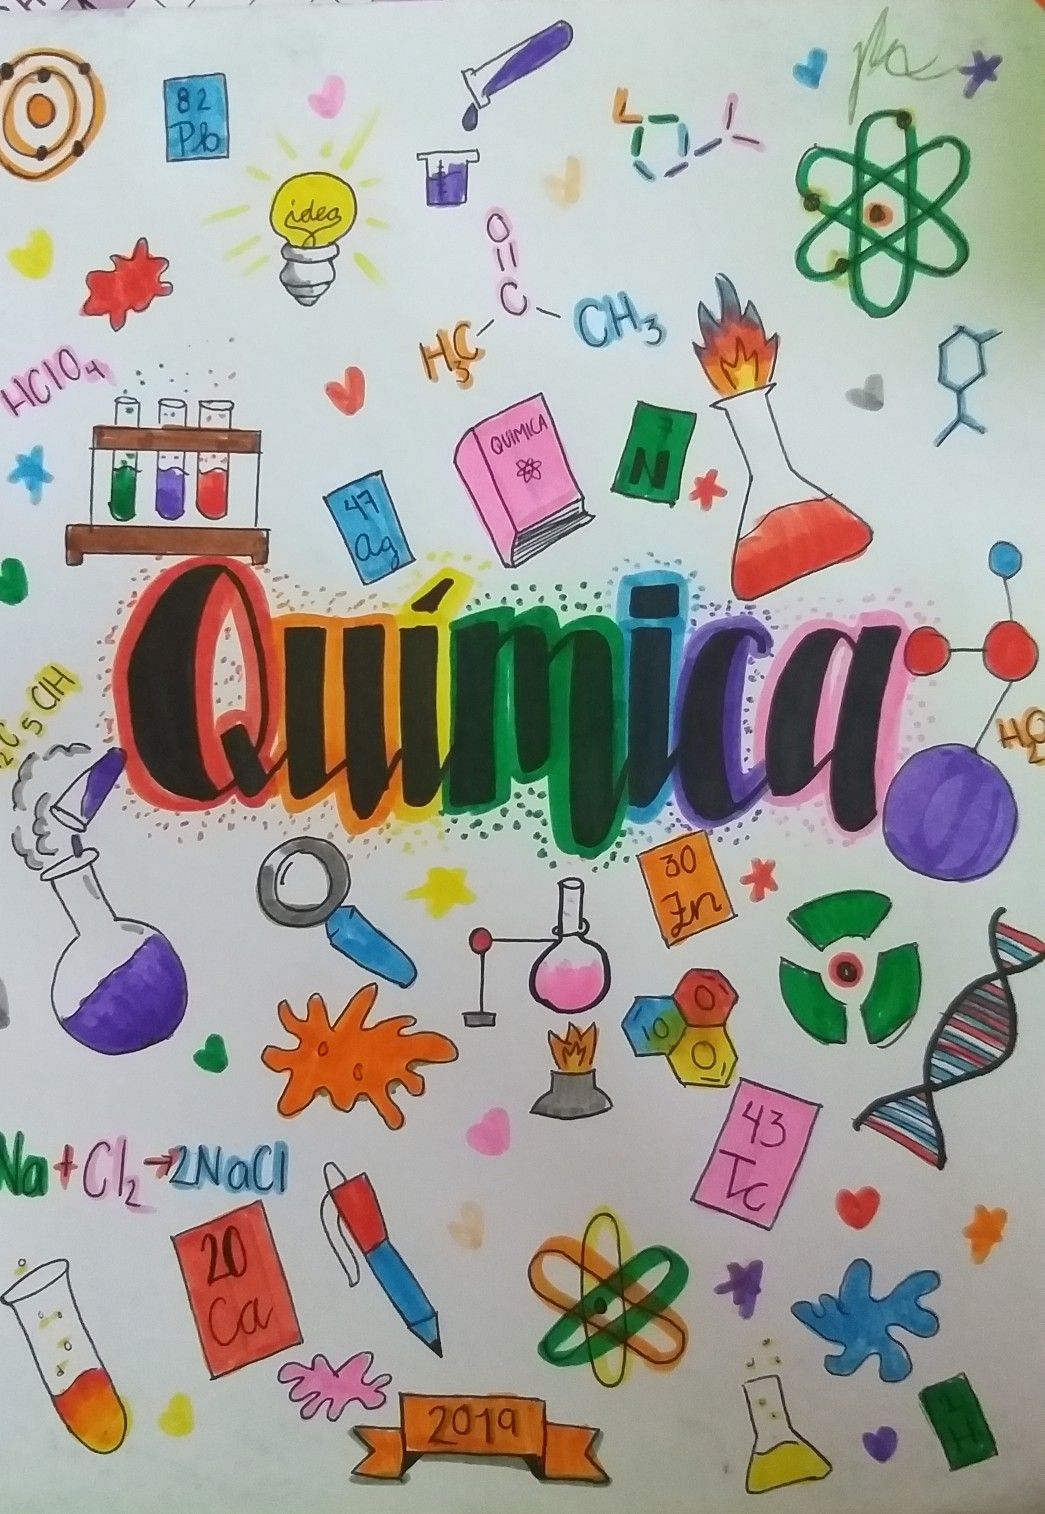 82
Pb
idea
O
C
H3C
CH3
HClO4
QUIMICA
7
N
47
Ag
Química
C5ClH
H2O
30
Zn
10
O
O
43
Tc
Na + Cl2 → 2NaCl
20
Ca
2019
1
H